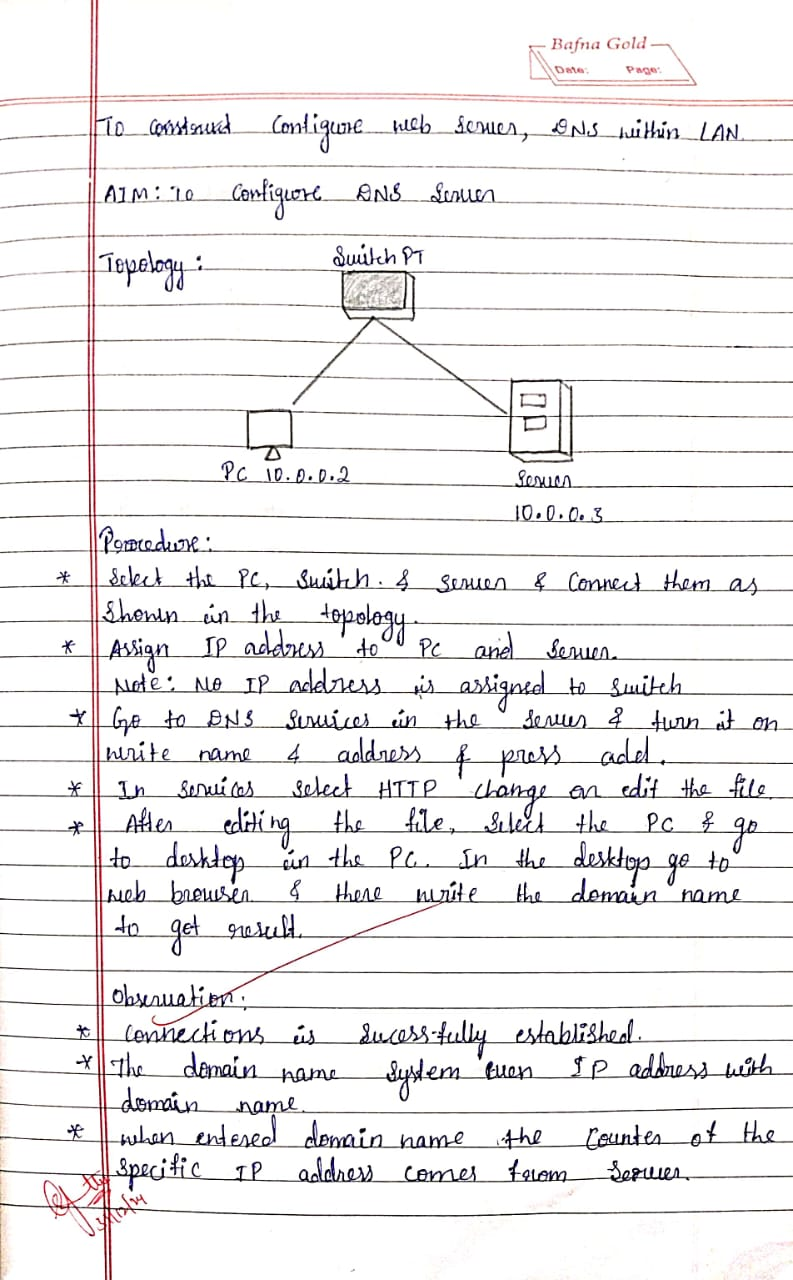 Bafna Gold
Date: Page:
To construct Configure web server, DNS within LAN.
AIM: To Configure DNS Server
Topology:
Switch PT
PC 10.0.0.2
Server
10.0.0.3
Procedure:
* Select the PC, Switch. & server & Connect them as
Shown in the topology.
* Assign IP address to PC and Server.
Note: No IP address is assigned to switch
* Go to DNS services in the server & turn it on
write name & address & press add.
* In services select HTTP change or edit the file.
* After editing the file, Select the PC & go
to desktop in the PC. In the desktop go to
web browser & there write the domain name
to get result.
Observation:
* Connections is sucess-fully established.
* The domain name system IP address with
domain name.
* when entered domain name the Counter of the
specific IP address comes from server.
31/12/24